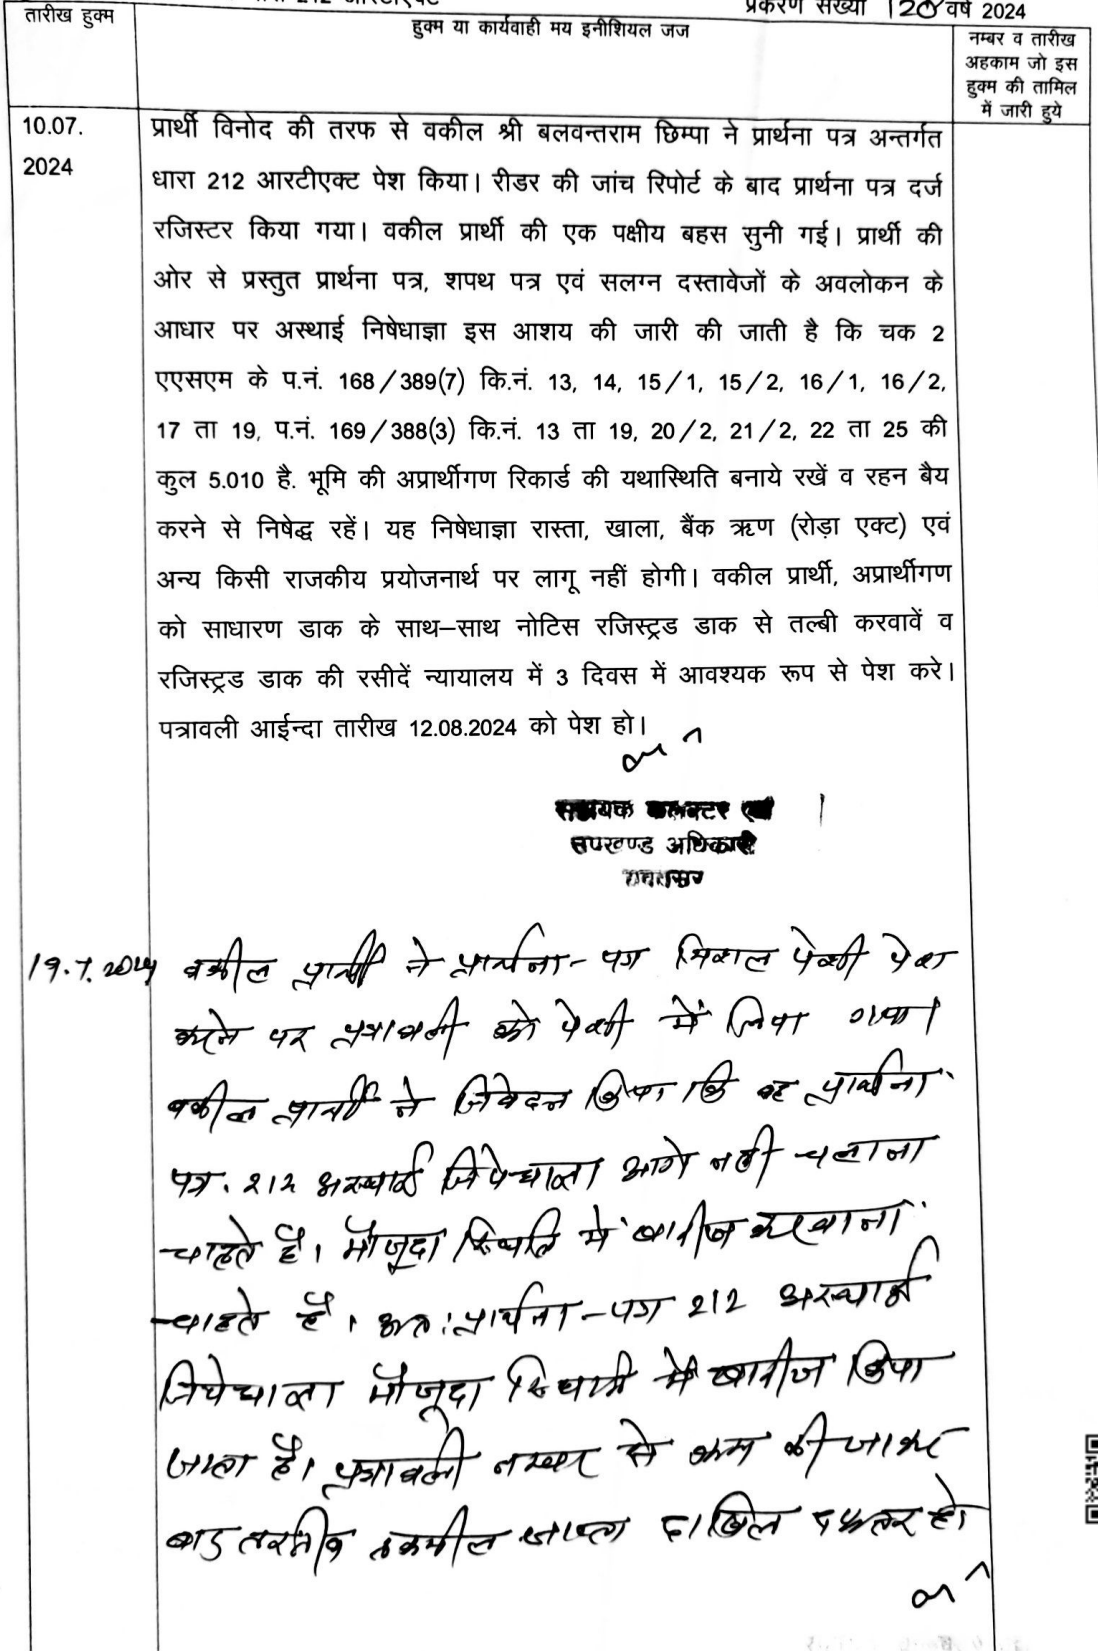 212 आरटीएक्ट
प्रकरण संख्या 120 वर्ष 2024
तारीख हुक्म
हुक्म या कार्यवाही मय इनीशियल जज
नम्बर व तारीख
अहकाम जो इस
हुक्म की तामिल
में जारी हुये
10.07.
2024
प्रार्थी विनोद की तरफ से वकील श्री बलवन्तराम छिम्पा ने प्रार्थना पत्र अन्तर्गत
धारा 212 आरटीएक्ट पेश किया। रीडर की जांच रिपोर्ट के बाद प्रार्थना पत्र दर्ज
रजिस्टर किया गया। वकील प्रार्थी की एक पक्षीय बहस सुनी गई। प्रार्थी की
ओर से प्रस्तुत प्रार्थना पत्र, शपथ पत्र एवं सलग्न दस्तावेजों के अवलोकन के
आधार पर अस्थाई निषेधाज्ञा इस आशय की जारी की जाती है कि चक 2
एएसएम के प.नं. 168/389(7) कि.नं. 13, 14, 15/1, 15/2, 16/1, 16/2,
17 ता 19, प.नं. 169/388(3) कि.नं. 13 ता 19, 20/2, 21/2, 22 ता 25 की
कुल 5.010 है. भूमि की अप्रार्थीगण रिकार्ड की यथास्थिति बनाये रखें व रहन बैय
करने से निषेद्ध रहें। यह निषेधाज्ञा रास्ता, खाला, बैंक ऋण (रोड़ा एक्ट) एवं
अन्य किसी राजकीय प्रयोजनार्थ पर लागू नहीं होगी। वकील प्रार्थी, अप्रार्थीगण
को साधारण डाक के साथ-साथ नोटिस रजिस्ट्रड डाक से तल्बी करवावें व
रजिस्ट्रड डाक की रसीदें न्यायालय में 3 दिवस में आवश्यक रूप से पेश करे।
पत्रावली आईन्दा तारीख 12.08.2024 को पेश हो।
सहायक कलक्टर एवं
उपखण्ड अधिकारी
19.7.2024 वकील प्रार्थी ने प्रार्थना-पत्र मिशल पेशी पेश
करने पर पत्रावली को पेशी में लिया गया।
वकील प्रार्थी ने निवेदन किया कि वह प्रार्थना
पत्र. 212 अस्थाई निषेधाज्ञा आगे नही चलाना
चाहते है। मौजूदा स्थिति में खारीज करवाना
चाहते है। अत: प्रार्थना-पत्र 212 अस्थाई
निषेधाज्ञा मौजूदा स्थिति में खारीज किया
जाता है। पत्रावली नम्बर से कम की जाकर
बाद तरतीब तकमील जाब्ता दाखिल दफ्तर हो